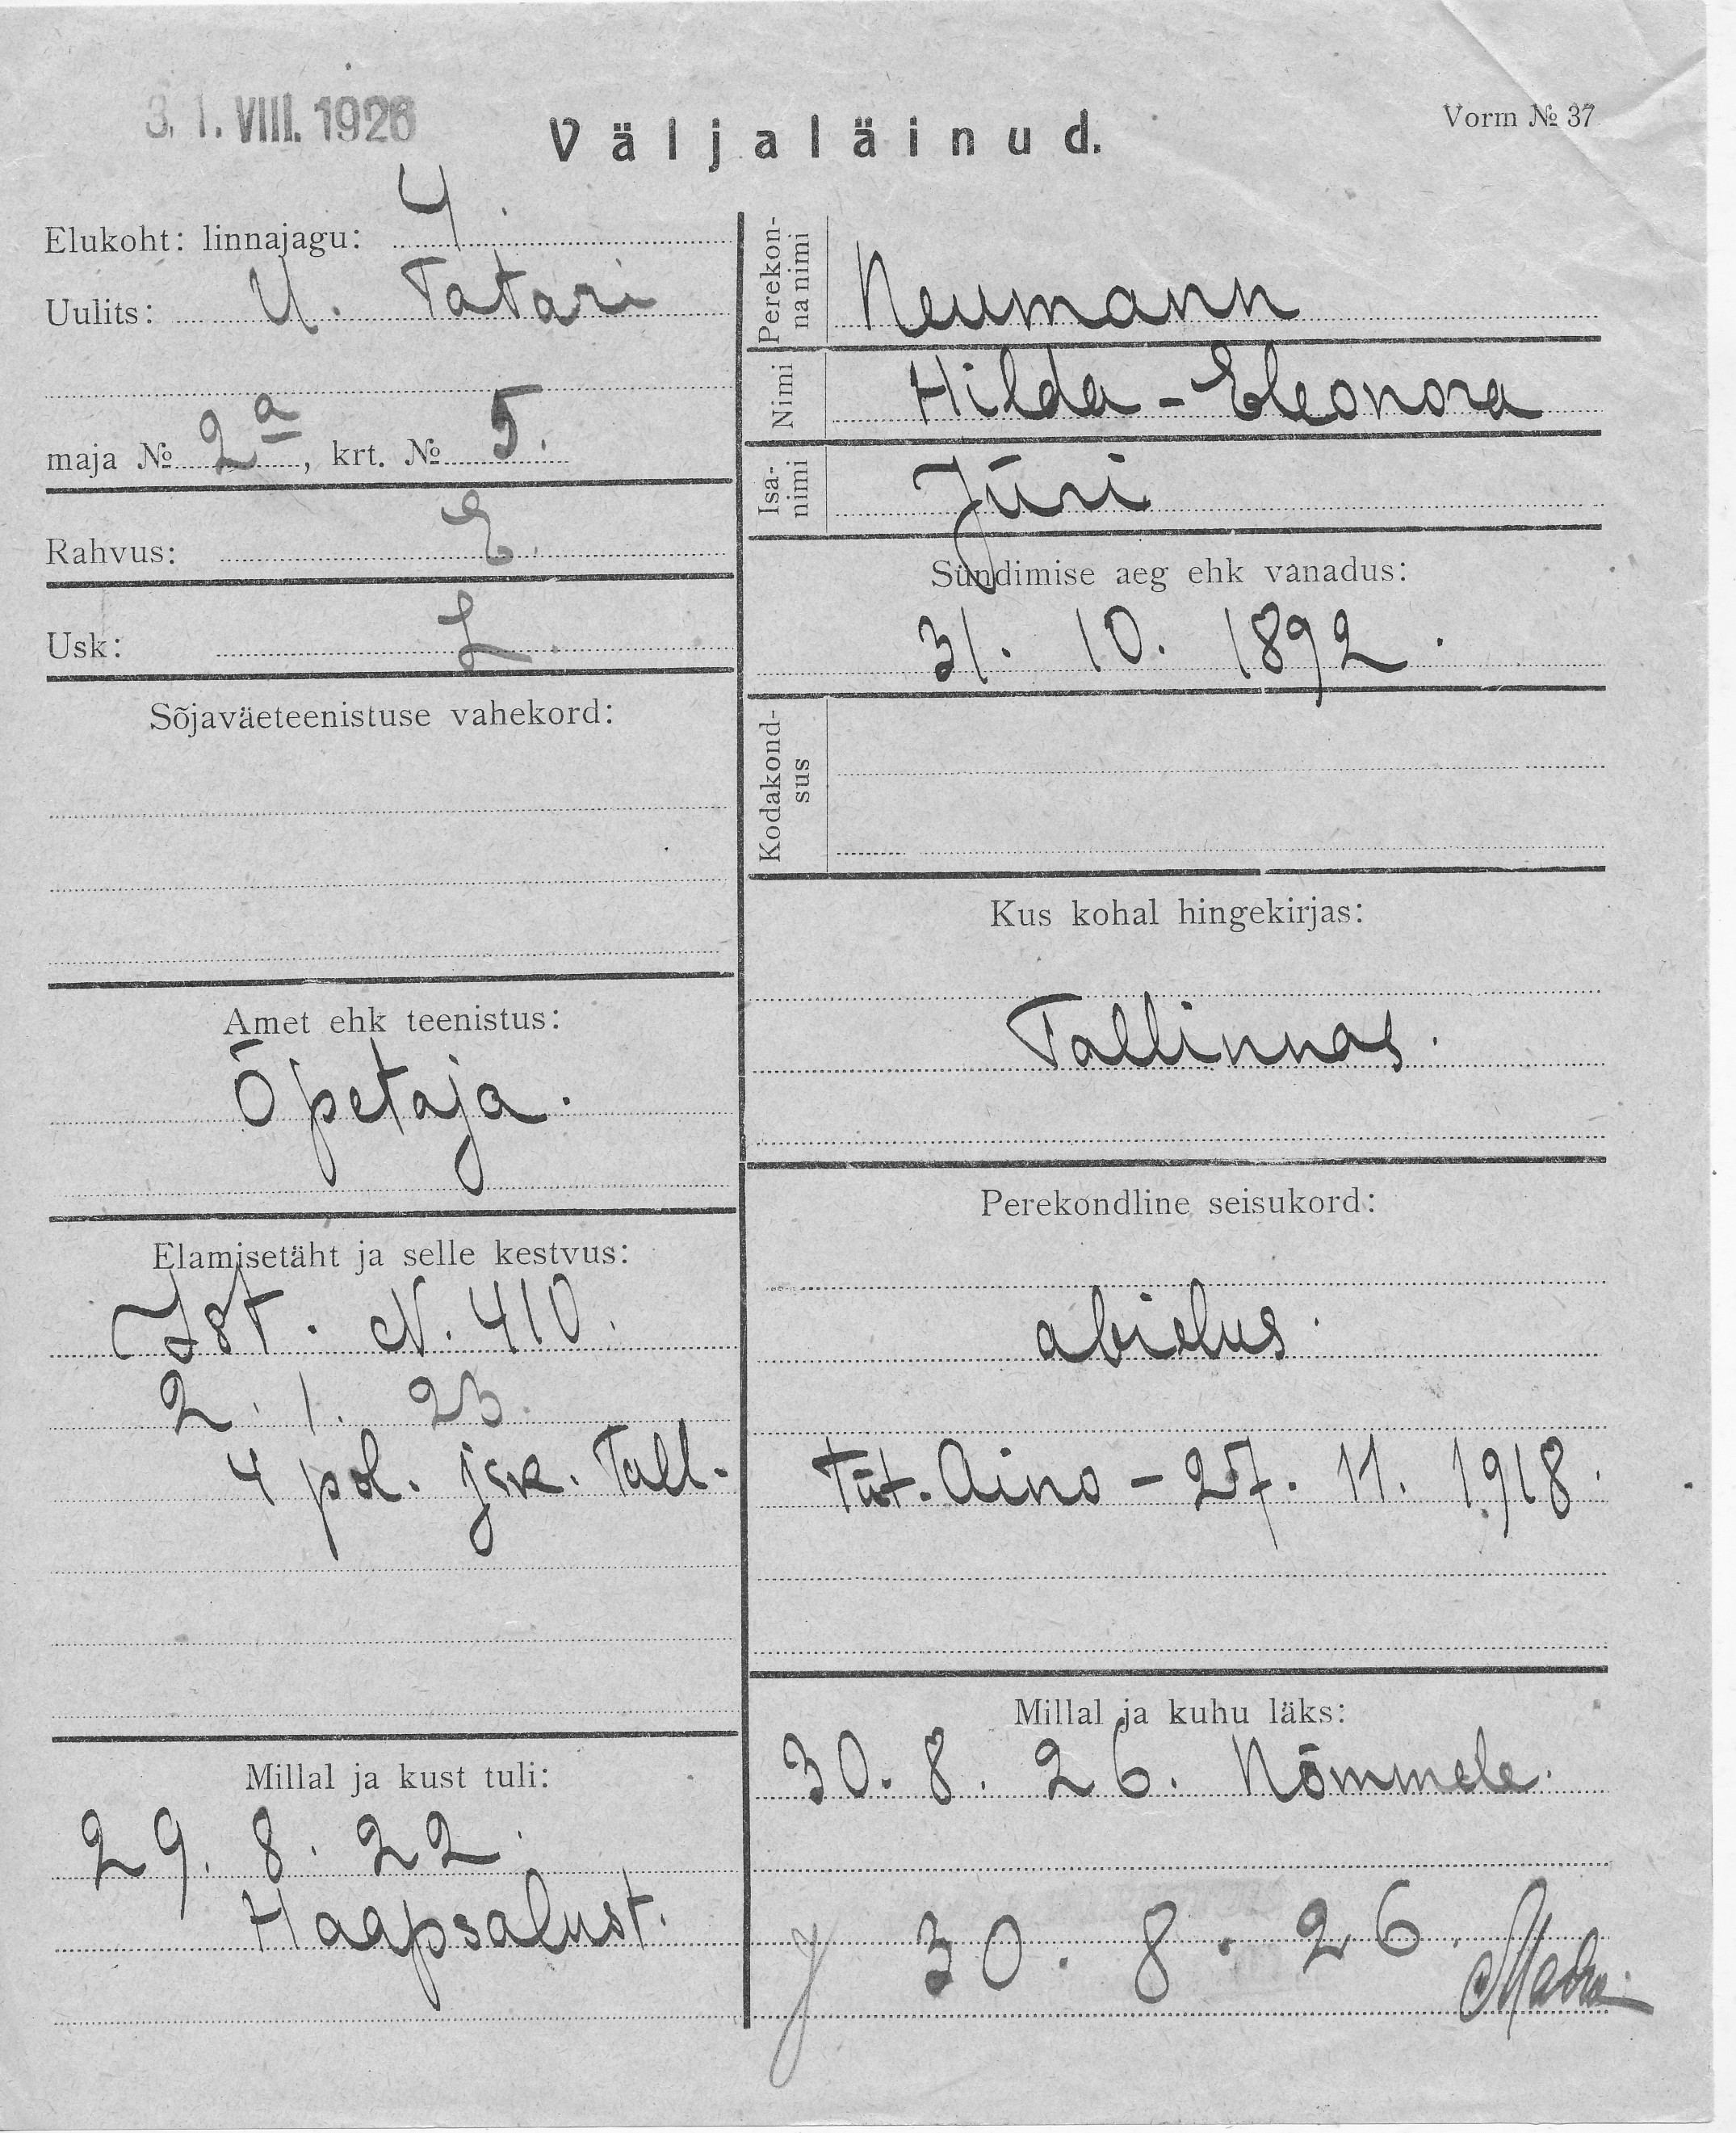 31. VIII. 1926
Väljaläinud.
Vorm № 37
Elukoht: linnajagu: 4.
Uulits: U. Tatari
maja № 2a, krt. № 5.
Rahvus: E.
Usk: L.
Sõjaväeteenistuse vahekord:
Amet ehk teenistus:
Õpetaja.
Elamisetäht ja selle kestvus:
Ist. N. 410.
2. 1. 23.
4 pol. jsk. Tall.
Millal ja kust tuli:
29. 8. 22.
Haapsalust.
Perekonna nimi
Neumann
Nimi
Hilda-Eleonora
Isanimi
Jüri
Sündimise aeg ehk vanadus:
31. 10. 1892.
Kodakondsus
Kus kohal hingekirjas:
Tallinnas.
Perekondline seisukord:
abielus.
Tüt. Aino – 27. 11. 1918.
Millal ja kuhu läks:
30. 8. 26. Nõmmele.
30. 8. 26.